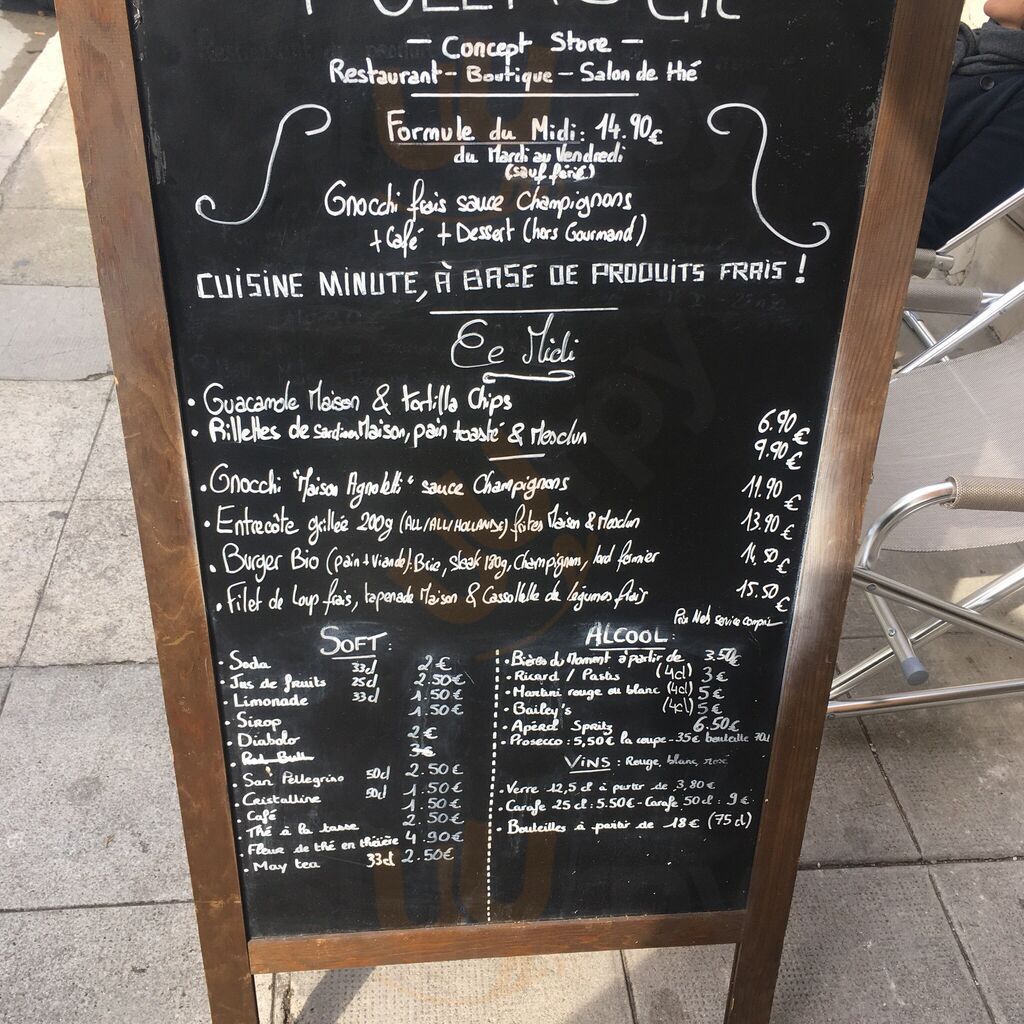 — Concept Store —
Restaurant - Boutique - Salon de thé
Formule du Midi: 14.90€
du Mardi au Vendredi
(sauf férié)
Gnocchi frais sauce Champignons
+ Café + Dessert (hors Gourmand)
CUISINE MINUTE, À BASE DE PRODUITS FRAIS !
Ce Midi
• Guacamole Maison & tortilla Chips 6.90€
• Rillettes de sardines Maison, pain toasté & Mesclun 9.90€
• Gnocchi "Maison Agnolelli" sauce Champignons 11.90€
• Entrecôte grillée 200g (ALL/ALL/HOLLANDE) frites Maison & Mesclun 13.90€
• Burger Bio (pain + viande): Brie, Steak 180g, Champignon, lard fermier 14.50€
• Filet de Loup frais, tapenade Maison & Cassollette de légumes frais 15.50€
Prix Nets service compris
SOFT :
• Soda 33cl 2€
• Jus de fruits 25cl 2.50€
• Limonade 33cl 1.50€
• Sirop
• Diabolo 2€
• Red Bull 3€
• San Pellegrino 50cl 2.50€
• Cristalline 50cl 1.50€
• Café 1.50€
• Thé à la tasse 2.50€
• Fleur de thé en théière 4.90€
• May tea 33cl 2.50€
ALCOOL :
• Bières du Moment à partir de 3.50€
• Ricard / Pastis (4cl) 3€
• Martini rouge ou blanc (4cl) 5€
• Bailey's (4cl) 5€
• Apérol Spritz 6.50€
• Prosecco : 5,50€ la coupe - 35€ bouteille 70cl
VINS : Rouge, blanc, rosé
• Verre 12,5 cl à partir de 3,80€
• Carafe 25 cl : 5.50€ - Carafe 50 cl : 9€
• Bouteilles à partir de 18€ (75 cl)